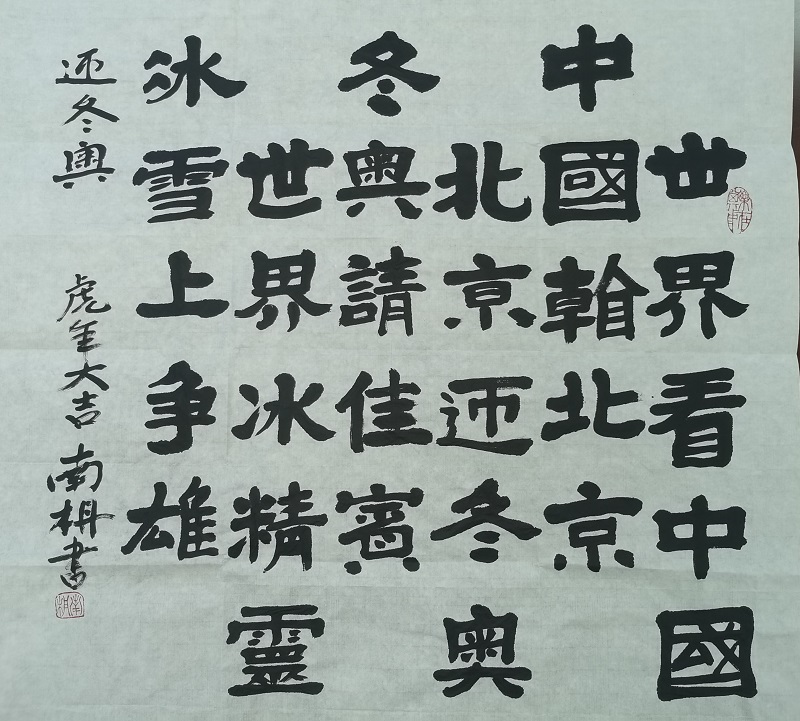 世界看中國
中國看北京
北京迊冬奥
冬奥請佳賓
世界冰精靈
冰雪上争雄
迊冬奥
虎年大吉 南枏書